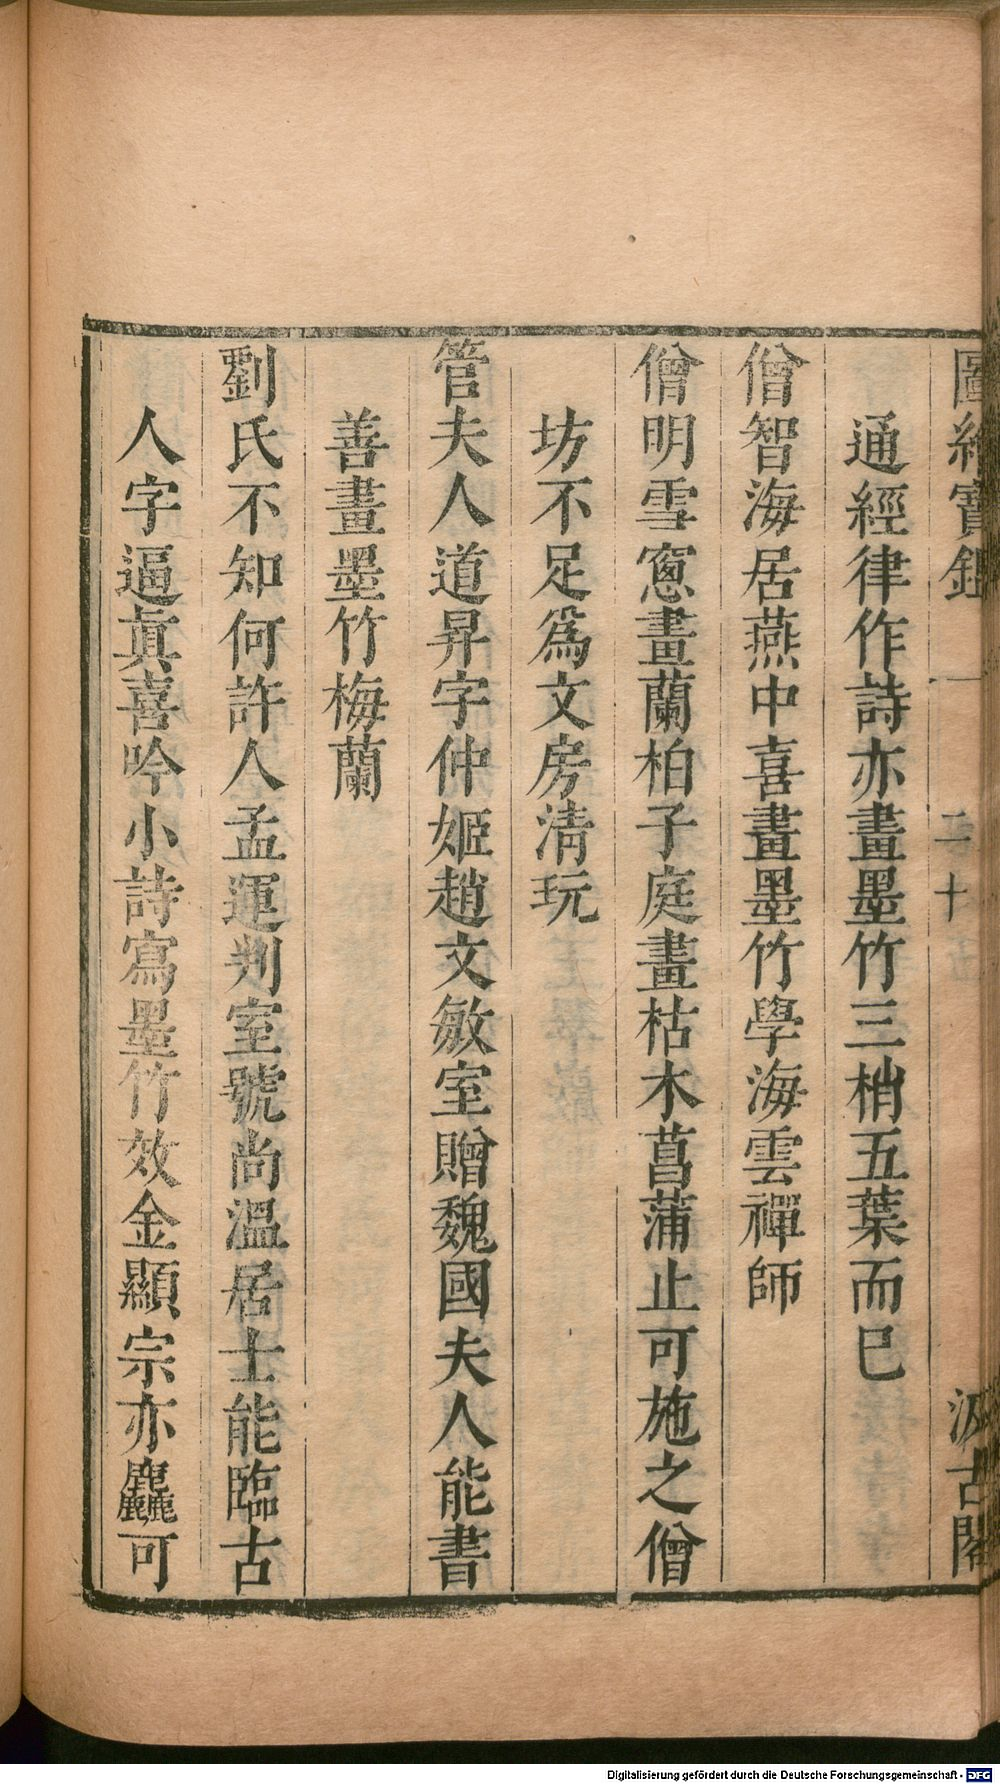 圖繪寶鑑
二十
汲古閣
通經律作詩亦畫墨竹三梢五葉而已
僧智海居燕中喜畫墨竹學海雲禪師
僧明雪窻畫蘭柏子庭畫枯木菖蒲止可施之僧
坊不足爲文房清玩
管夫人道昇字仲姬趙文敏室贈魏國夫人能書
善畫墨竹梅蘭
劉氏不知何許人孟運判室號尚溫居士能臨古
人字逼眞喜吟小詩寫墨竹效金顯宗亦麤可
Digitalisierung gefördert durch die Deutsche Forschungsgemeinschaft - DFG